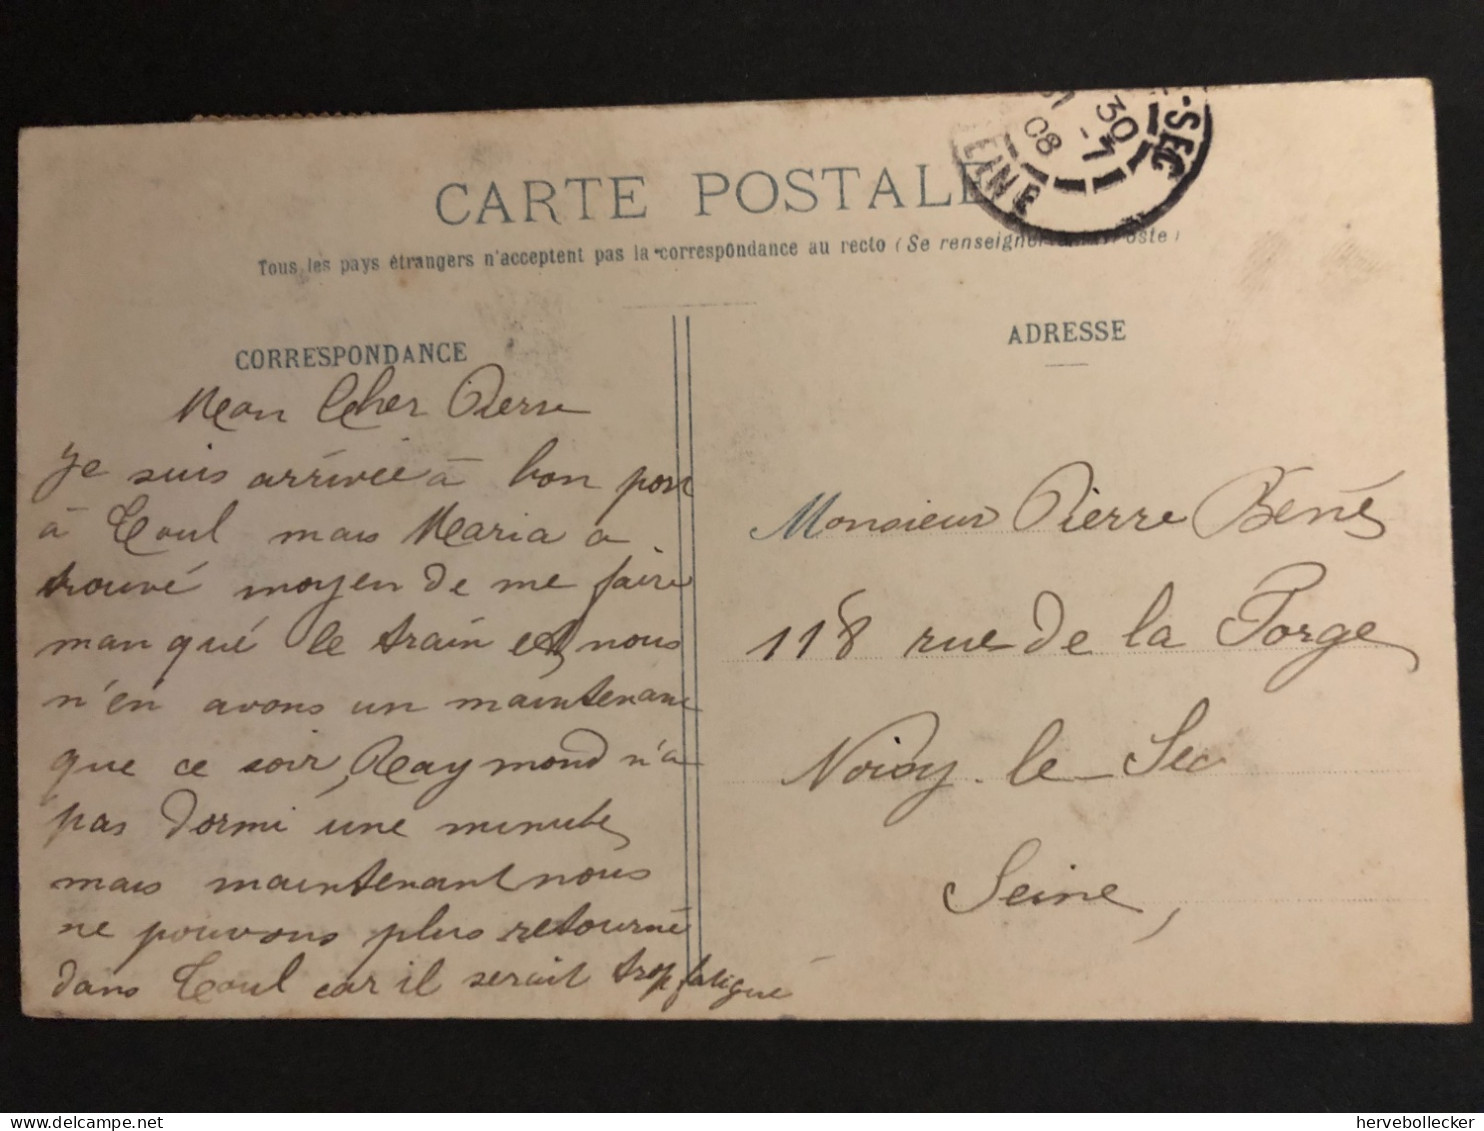 CARTE POSTALE
Tous les pays étrangers n'acceptent pas la correspondance au recto (Se renseigner à la Poste)
CORRESPONDANCE
Mon Cher Pierre
Je suis arrivée à bon port
à Toul mais Maria a
trouvé moyen de me faire
manqué le train et nous
n'en avons un maintenant
que ce soir, Raymond n'a
pas dormi une minute
mais maintenant nous
ne pouvons plus retourné
dans Toul car il serait trop fatigué
ADRESSE
Monsieur Pierre Béné
118 rue de la Forge
Noisy-le-Sec
Seine,
-SEC
EINE
30
-7
08
hervebollecker